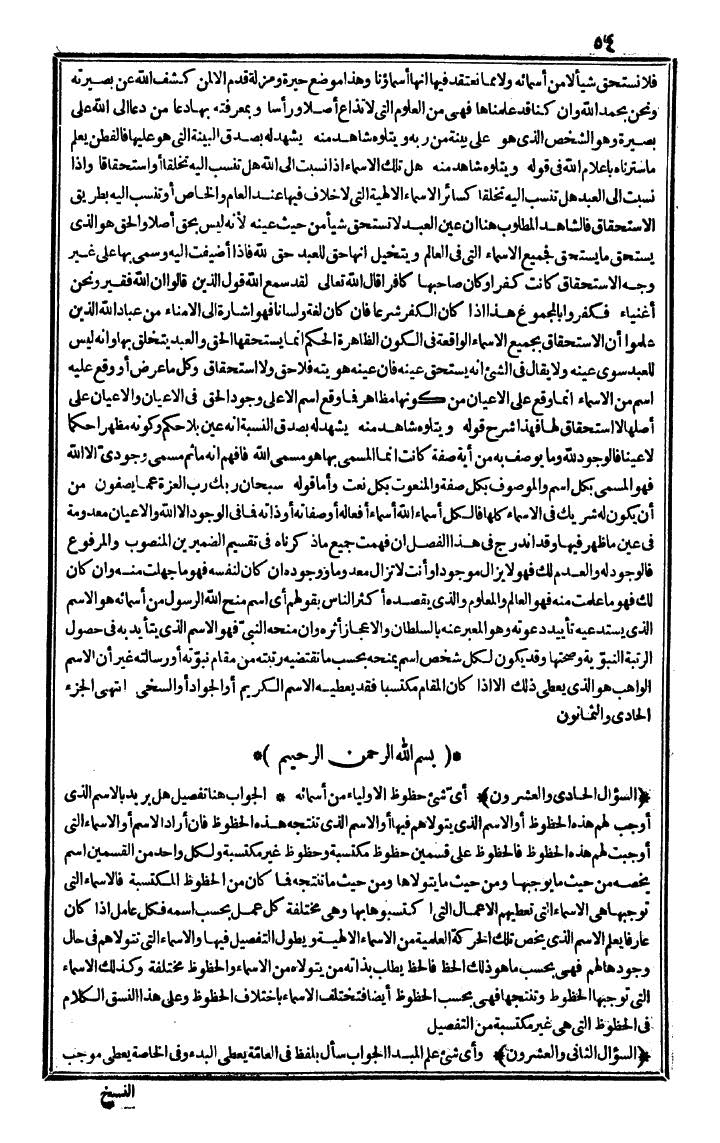 ٥٤
فلا نستحق شيأ لا من أسمائه ولا مما نعتقد فيها انها أسماؤنا وهذا موضع حيرة ومزلة قدم الا لمن كشف الله عن بصيرته
ونحن بحمد الله وان كنا قد علمناها فهى من العلوم التى لا نذاع أصلا ورأسا وبمعرفته بها دعا من دعا الى الله على
بصيرة وهو الشخص الذى هو على بينة من ربه ويتلوه شاهد منه يشهد له بصدق البينة التى هو عليها فالفطن يعلم
ما سترناه باعلام الله فى قوله ويتلوه شاهد منه هل تلك الاسماء اذا نسبت الى الله هل تنسب اليه تخلقا أو استحقاقا واذا
نسبت الى العبد هل تنسب اليه تخلقا كسائر الاسماء الالهية التى لا خلاف فيها عند العام والخاص أو تنسب اليه بطريق
الاستحقاق فالشاهد المطلوب هنا ان عين العبد لا تستحق شيأ من حيث عينه لأنه ليس بحق أصلا والحق هو الذى
يستحق ما يستحق فجميع الاسماء التى فى العالم ويتخيل انها حق للعبد حق لله فاذا أضيفت اليه وسمى بها على غير
وجه الاستحقاق كانت كفرا وكان صاحبها كافرا قال الله تعالى لقد سمع الله قول الذين قالوا ان الله فقير ونحن
أغنياء فكفروا بالمجموع هذا اذا كان الكفر شرعا فان كان لغة ولسانا فهو اشارة الى الامناء من عباد الله الذين
علموا أن الاستحقاق بجميع الاسماء الواقعة فى الكون الظاهرة الحكم انما يستحقها الحق والعبد يتخلق بها وانه ليس
للعبد سوى عينه ولا يقال فى الشئ انه يستحق عينه فان عينه هويته فلا حق ولا استحقاق وكل ما عرض أو وقع عليه
اسم من الاسماء انما وقع على الاعيان من كونها مظاهر فما وقع اسم الا على وجود الحق فى الاعيان والاعيان على
أصلها لا استحقاق لها فهذا شرح قوله ويتلوه شاهد منه يشهد له بصدق النسبة انه عين بلا حكم وكونه مظهرا حكما
لا عينا فالوجود لله وما يوصف به من أية صفة كانت انما المسمى بها هو مسمى الله فافهم انه ما ثم مسمى وجودىّ الا الله
فهو المسمى بكل اسم والموصوف بكل صفة والمنعوت بكل نعت وأما قوله سبحان ربك رب العزة عما يصفون من
أن يكون له شريك فى الاسماء كلها فالكل أسماء الله أسماء أفعاله أو صفاته أو ذاته فما فى الوجود الا الله والاعيان معدومة
فى عين ما ظهر فيها وقد اندرج فى هذا الفصل ان فهمت جميع ما ذكرناه فى تقسيم الضميرين المنصوب والمرفوع
فالوجود له والعدم لك فهو لا يزال موجودا وأنت لا تزال معدوما ووجوده ان كان لنفسه فهو ما جهلت منه وان كان
لك فهو ما علمت منه فهو العالم والمعلوم والذى يقصده أكثر الناس بقولهم أى اسم منح الله الرسول من أسمائه هو الاسم
الذى يستدعيه تأييد دعوته وهو المعبر عنه بالسلطان والاعجاز أثره وان منحه النبىّ فهو الاسم الذى يتأيد به فى حصول
الرتبة النبوّية وصحتها وقد يكون لكل شخص اسم يمنحه بحسب ما تقتضيه رتبته من مقام نبوّته أو رسالته غير أن الاسم
الواهب هو الذى يعطى ذلك الا اذا كان المقام مكتسبا فقد يعطيه الاسم الكريم أو الجواد أو السخى انتهى الجزء
الحادى والثمانون
*( بسم الله الرحمن الرحيم )*
﴿السؤال الحادى والعشرون﴾ أىّ شئ حظوظ الاولياء من أسمائه * الجواب هنا تفصيل هل يريد بالاسم الذى
أوجب لهم هذه الحظوظ أو الاسم الذى يتولاهم فيها أو الاسم الذى تنتجه هذه الحظوظ فان أراد الاسم أو الاسماء التى
أوجبت لهم هذه الحظوظ فالحظوظ على قسمين حظوظ مكتسبة وحظوظ غير مكتسبة ولكل واحد من القسمين اسم
يخصه من حيث ما يوجبها ومن حيث ما يتولاها ومن حيث ما تنتجه فما كان من الحظوظ المكتسبة فالاسماء التى
توجبها هى الاسماء التى تعطيهم الاعمال التى اكتسبوها بها وهى مختلفة كل عمل بحسب اسمه فكل عامل اذا كان
عارفا يعلم الاسم الذى يخص تلك الحركة العلمية من الاسماء الالهية ويطول التفصيل فيها والاسماء التى تتولاهم فى حال
وجودها لهم فهى بحسب ما هو ذلك الحظ فالحظ يطلب بذاته من يتولاه من الاسماء والحظوظ مختلفة وكذلك الاسماء
التى توجبها الحظوظ وتنتجها فهى بحسب الحظوظ أيضا فتختلف الاسماء باختلاف الحظوظ وعلى هذا النسق الكلام
فى الحظوظ التى هى غير مكتسبة من التفصيل
﴿السؤال الثانى والعشرون﴾ وأى شئ علم المبدا الجواب سأل بلفظ فى العامّة يعطى البدء وفى الخاصة يعطى موجب
النسخ